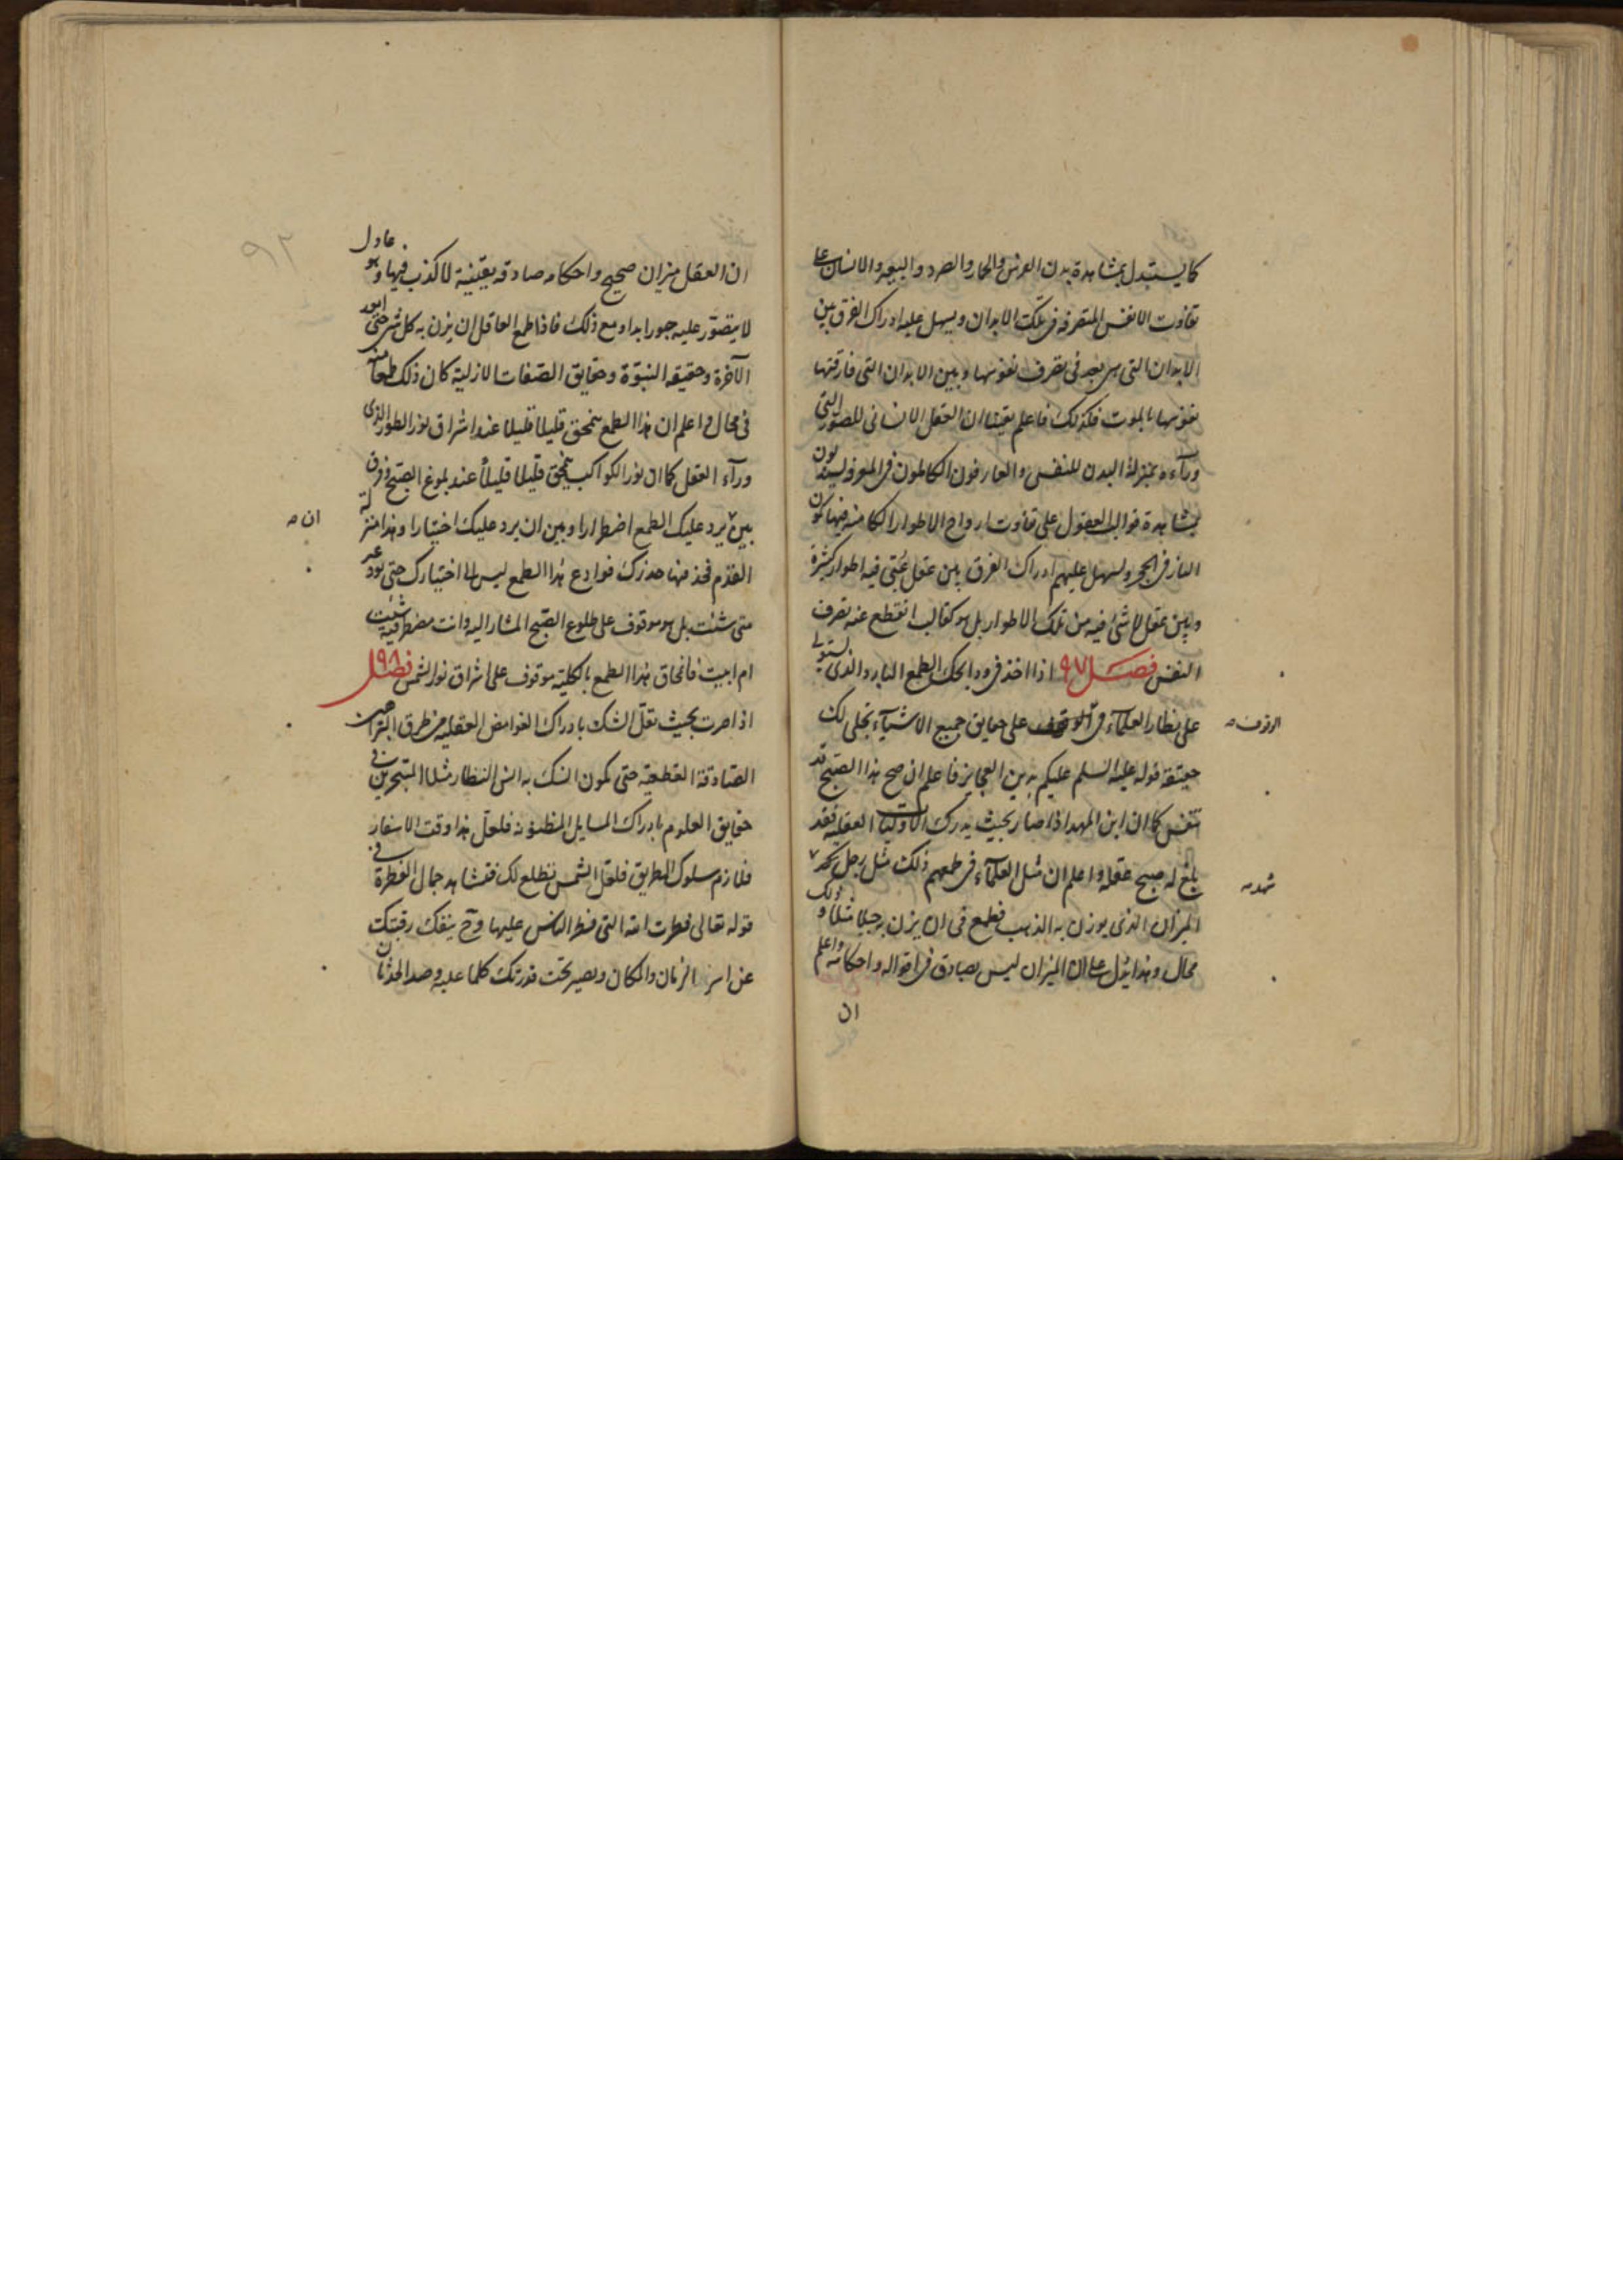 كما يستدل بمشاهدة بدن الفرس والحمار والصرد والببغه والانسان على
تفاوت الانفس المتصرفة فى تلك الابدان ويسهل عليه ادراك الفرق بين
الابدان التى هى بعد فى تصرف نفوسها وبين الابدان التى فارقتها
نفوسها بالموت فكذلك فاعلم يقينا ان العقل الانسانى للصور التى
وراءه بمنزلة البدن للنفس والعارفون الكاملون فى المعرفة
بمشاهدة قوالب العقول على تفاوت ارواح الاطوار الكامنة فيها كمون
النار فى الحجر ويسهل عليهم ادراك الفرق بين عقل فيه اطوار كثيرة
وبين عقل لا شئ فيه من تلك الاطوار بل هو كقالب انقطع عنه تصرف
النفس فصل ٩٧ اذا اخذ فى وداعك الطمع البارد الذى يستولى
على نظار العلماء فى الوقوف على حقايق جميع الاشياء تجلى لك
الوقوف
حقيقة قوله عليه السلم عليكم بدين العجايز فاعلم ان صبح هذا الصبح قد
تنفس كما ان ابن المهد اذا صار بحيث يدرك الاوليات العقلية فقد
بلغ له صبح عقله واعلم ان مثل العلماء فى طمعهم ذلك مثل رجل
شهد
الميزان الذى يوزن به الذهب فطمع فى ان يزن به جبلا مثلا وذلك
محال وهذا لا يدل على ان الميزان ليس بصادق فى اقواله واحكامه واعلم
ان
٩٢
ان العقل ميزان صحيح واحكامه صادقة يقينية لا كذب فيها وهو عادل
لا يتصور عليه جور ابدا ومع ذلك فاذا طمع العاقل ان يزن به كل شئ حتى امور
الآخرة وحقيقة النبوة وحقايق الصفات الازلية كان ذلك طمعا منه
فى محال واعلم ان هذا الطمع ينمحق قليلا قليلا عند اشراق نور الطور الذى
وراء العقل كما ان نور الكواكب ينمحق قليلا قليلا عند بلوغ الصبح وفرق
بين يرد عليك الطمع اضطرارا وبين ان يرد عليك اختيارا وهذا منزلة
ان
القدم فخذ منها حذرك فوداع هذا الطمع ليس الى اختيارك حتى تودعه
متى شئت بل هو موقوف على طلوع الصبح المشار اليه وانت مضطر فيه شئت
ام ابيت فانمحاق هذا الطمع بالكلية موقوف على اشراق نور الشمس فصل ٩٨
اذا صرت بحيث تقل انسك بادراك الغوامض العقلية من طرق البراهين
الصادقة القطعية حتى يكون انسك به انس النظار مثلا المتبحرين فى
حقايق العلوم بادراك المسايل المظنونة فلعل هذا وقت الاسفار
فلازم سلوك الطريق فلعل الشمس تطلع لك فتشاهد جمال الفطرة فى
قوله تعالى فطرت الله التى فطر الناس عليها وح ينفك رقبتك
عن اسر الزمان والمكان ويصير تحت قدرتك كلما عليه وصد الحدثان